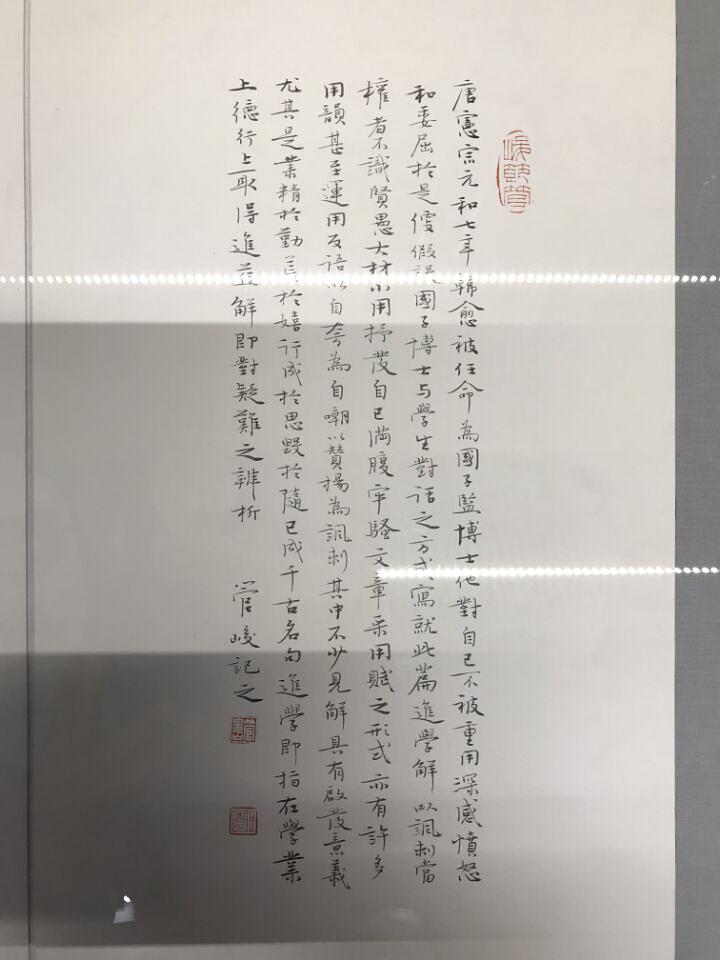 唐憲宗元和七年韓愈被任命為國子監博士他對自己不被重用深感憤怒
和委屈於是便假託國子博士与學生對話之方式寫就此篇進學解以諷刺當
權者不識賢愚大材小用抒發自己滿腹牢騷文章采用賦之形式亦有許多
用韻甚至運用反語以自夸為自嘲以贊揚為諷刺其中不少見解具有啟發意義
尤其是業精於勤荒於嬉行成於思毀於隨已成千古名句進學即指在學業
上德行上取得進益解即對疑難之辨析
管峻記之